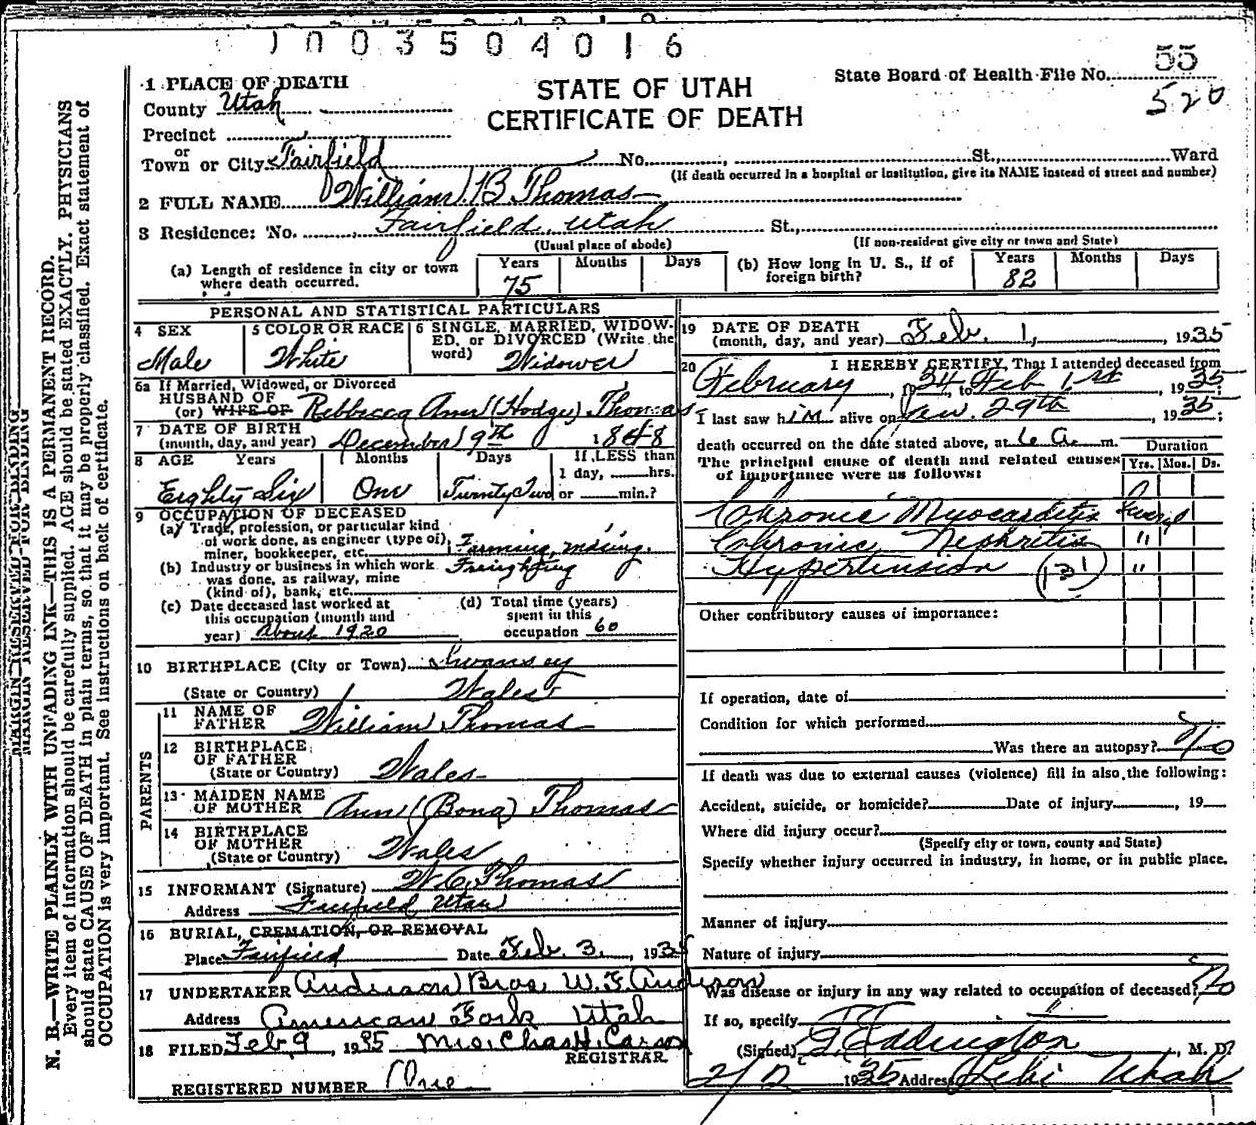 1003504016
STATE OF UTAH
CERTIFICATE OF DEATH
State Board of Health File No. 55
520
1 PLACE OF DEATH
County Utah
Precinct
or
Town or City Fairfield No. St., Ward
(If death occurred in a hospital or institution, give its NAME instead of street and number)
2 FULL NAME William B Thomas
3 Residence: No. Fairfield, Utah St.,
(Usual place of abode) (If non-resident give city or town and State)
(a) Length of residence in city or town where death occurred. Years 75 Months Days
(b) How long in U. S., if of foreign birth? Years 82 Months Days
PERSONAL AND STATISTICAL PARTICULARS
4 SEX Male
5 COLOR OR RACE White
6 SINGLE, MARRIED, WIDOWED, OR DIVORCED (Write the word) Widower
6a If Married, Widowed, or Divorced
HUSBAND OF
(or) WIFE OF Rebbecca Ann (Hodge) Thomas
7 DATE OF BIRTH
(month, day, and year) December 9th 1848
8 AGE Years Months Days If LESS than
1 day, hrs.
Eighty Six One Twenty Two or min.?
9 OCCUPATION OF DECEASED
(a) Trade, profession, or particular kind
of work done, as engineer (type of),
miner, bookkeeper, etc. Farming, mining.
(b) Industry or business in which work Freighting
was done, as railway, mine
(kind of), bank, etc.
(c) Date deceased last worked at
this occupation (month and
year) About 1920
(d) Total time (years)
spent in this
occupation 60
10 BIRTHPLACE (City or Town) Swansey
(State or Country) Wales
PARENTS
11 NAME OF
FATHER William Thomas
12 BIRTHPLACE
OF FATHER
(State or Country) Wales
13 MAIDEN NAME
OF MOTHER Ann (Bona) Thomas
14 BIRTHPLACE
OF MOTHER
(State or Country) Wales
15 INFORMANT (Signature) W. C. Thomas
Address Fairfield Utah
16 BURIAL, CREMATION, OR REMOVAL
Place Fairfield Date Feb. 3, 1935
17 UNDERTAKER Anderson Bros. W. F. Anderson
Address American Fork Utah
18 FILED Feb 9 1935 Mrs. Chas H. Carson
REGISTRAR
REGISTERED NUMBER One
19 DATE OF DEATH
(month, day, and year) Feb. 1, 1935
20 I HEREBY CERTIFY, That I attended deceased from
February 34, to Feb 1st, 1935
I last saw him alive on Jan. 29th, 1935;
death occurred on the date stated above, at 6 a. m.
Duration
The principal cause of death and related causes
of importance were as follows:
Yrs. Mos. Ds.
Chronic Myocarditis
Chronic Nephritis "
Hypertension (131) "
Other contributory causes of importance:
If operation, date of
Condition for which performed
Was there an autopsy? No
If death was due to external causes (violence) fill in also the following:
Accident, suicide, or homicide? Date of injury, 19
Where did injury occur?
(Specify city or town, county and State)
Specify whether injury occurred in industry, in home, or in public place.
Manner of injury
Nature of injury
Was disease or injury in any way related to occupation of deceased? No
If so, specify
(Signed) Eddington, M. D.
2/2 1935 Address Lehi Utah
MARGIN RESERVED FOR BINDING
MARGIN RESERVED FOR BINDING
N. B.—WRITE PLAINLY WITH UNFADING INK—THIS IS A PERMANENT RECORD.
Every item of information should be carefully supplied. AGE should be stated EXACTLY. PHYSICIANS
should state CAUSE OF DEATH in plain terms, so that it may be properly classified. Exact statement of
OCCUPATION is very important. See instructions on back of certificate.